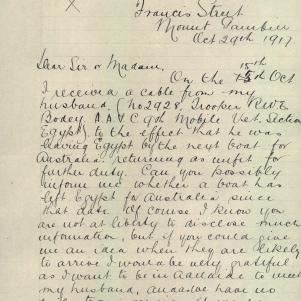 Francis Street
Mount Gambier
Oct 29th 1917
Dear Sir or Madam,
15th
On the Oct
I received a cable from my
husband, (No 2928, Trooper R.W.E.
Bodey. A.A.V.C 9th Mobile Vet. Section
Egypt) to the effect that he was
leaving Egypt by the next boat for
Australia returning as unfit for
further duty. Can you possibly
inform me whether a boat has
left Egypt for Australia since
that date. Of course I know you
are not at liberty to disclose much
information, but if you could give
me an idea when they are likely
to arrive I would be very grateful
as I want to be in Adelaide to meet
my husband, and as we have no